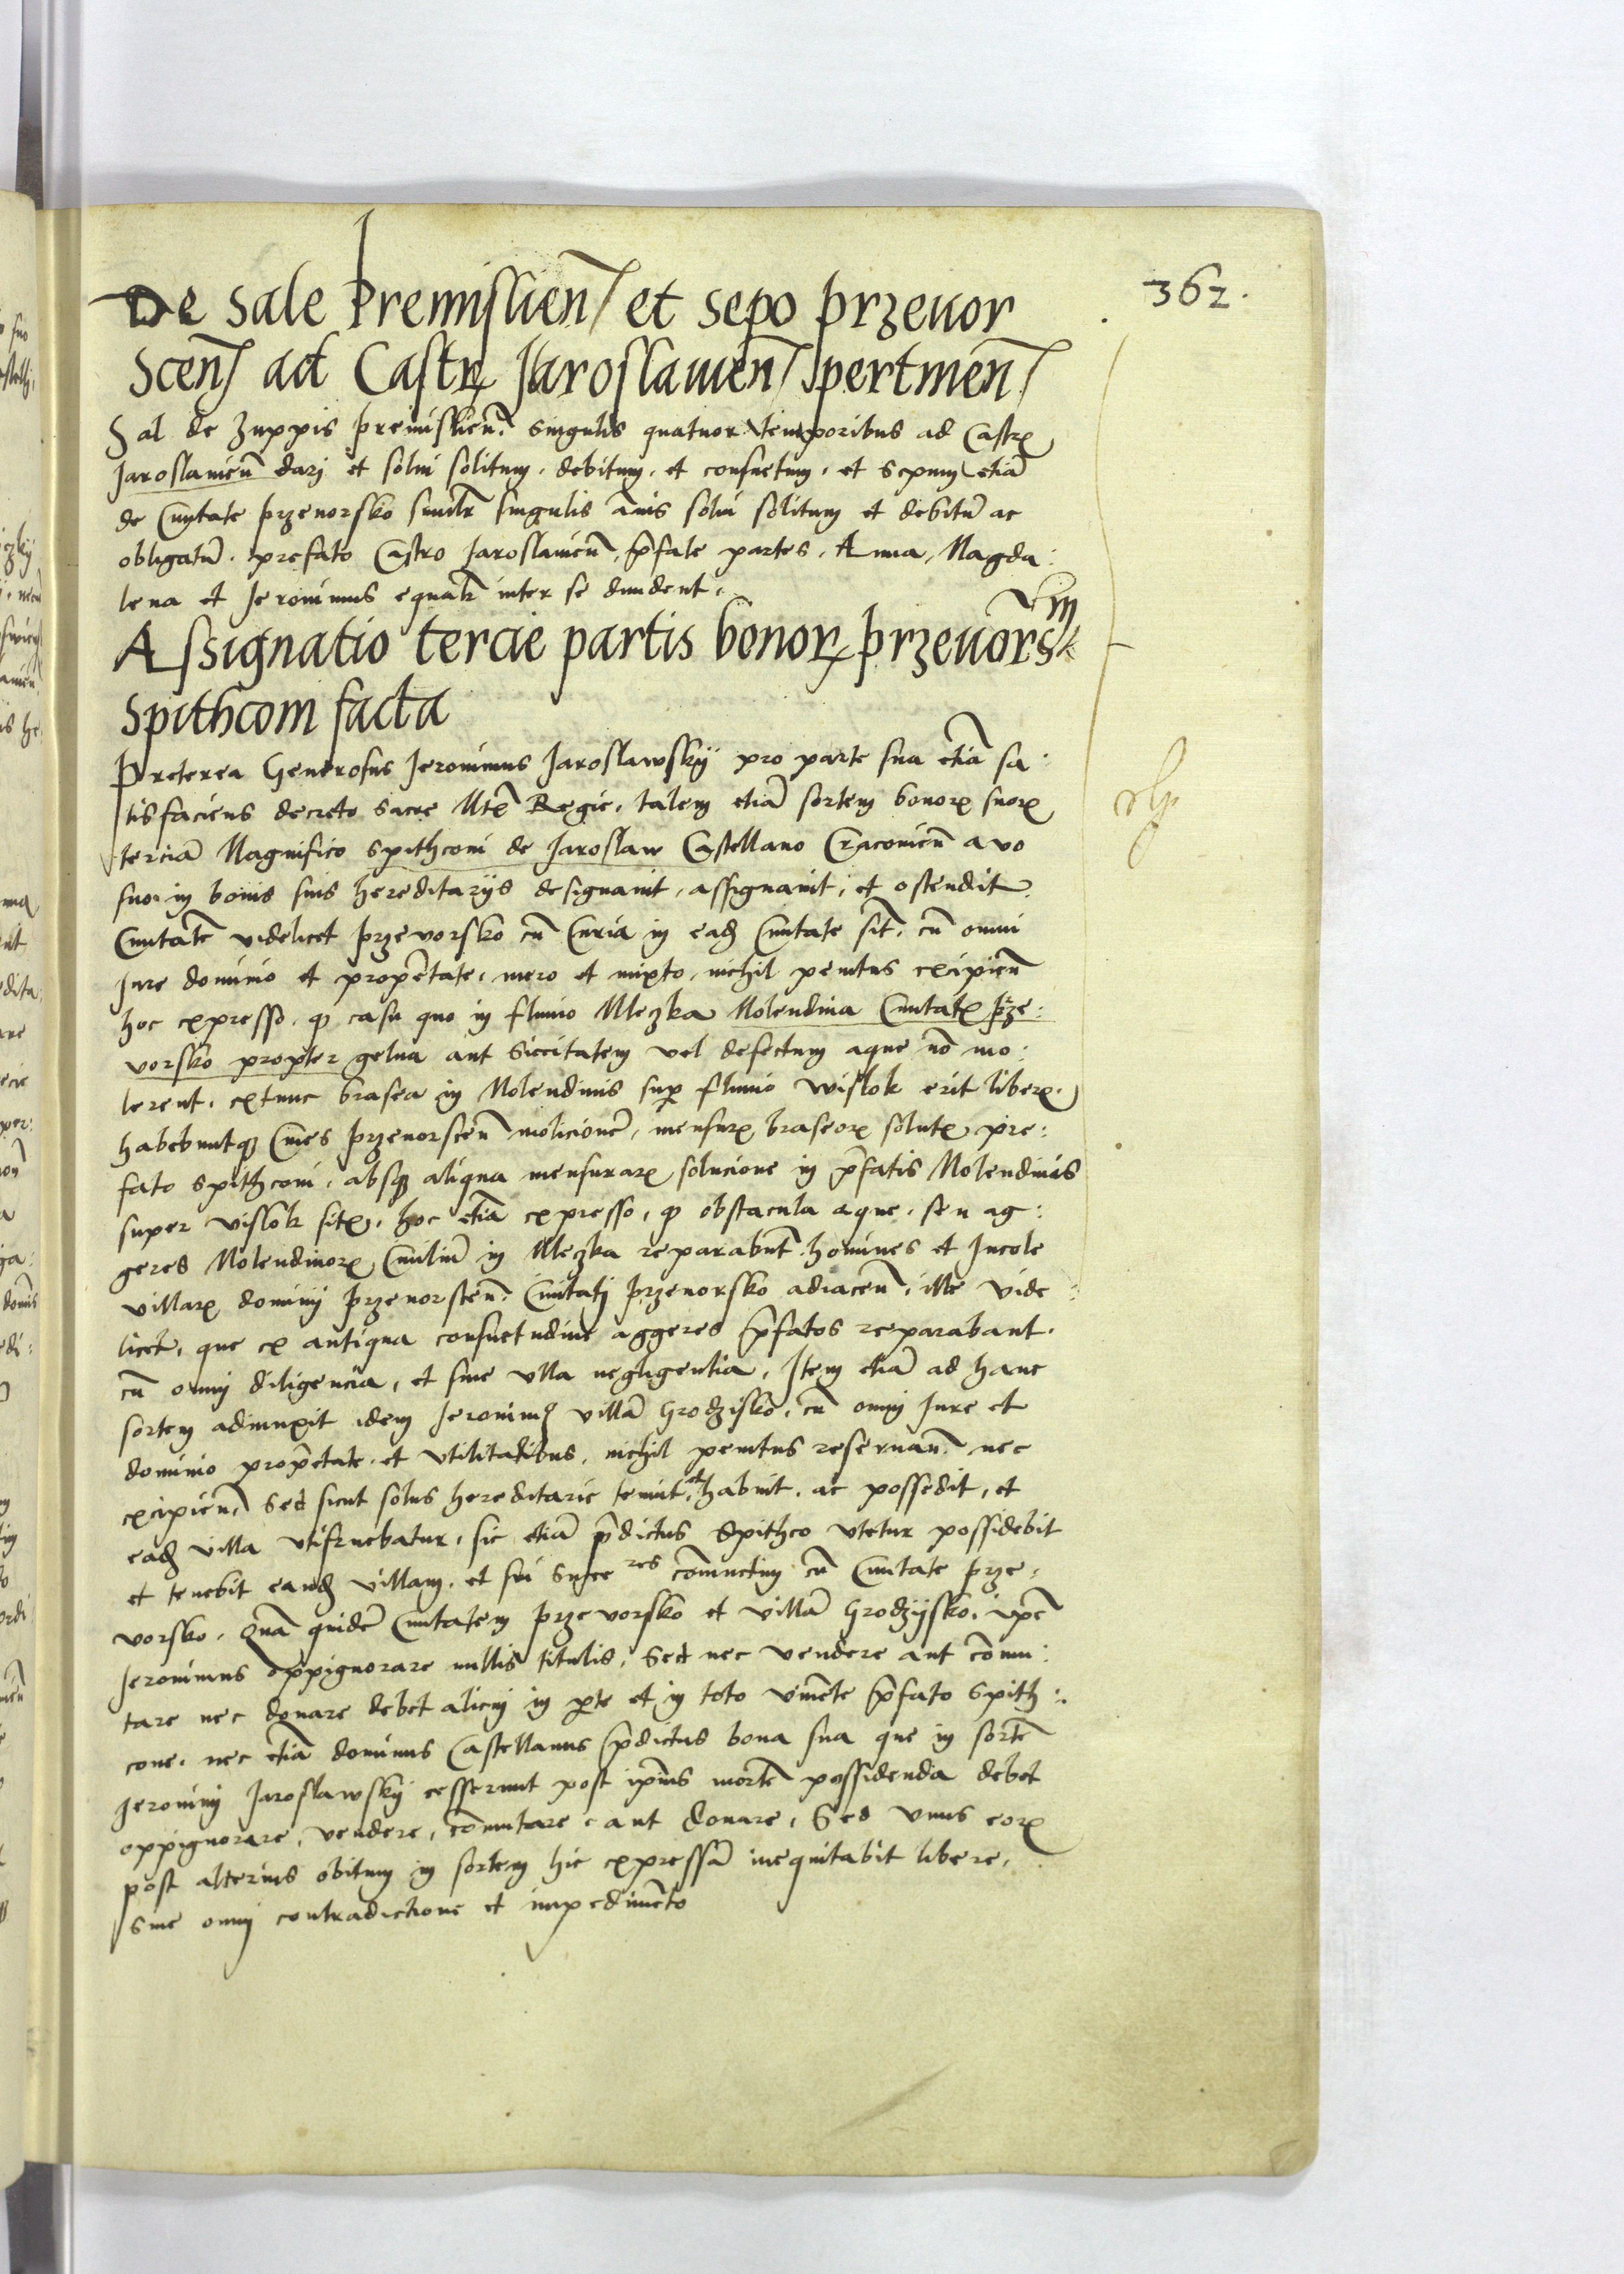 362.
De sale Premislien̄ et sepo przeuor
scen̄ ad Castrꝝ Jaroslauien̄ pertinen̄
Sal de Zuppis premislien̄. singulis quatuor temporibus ad Castrꝝ
Jaroslauien̄ darj et solui solitum. debitum. et consuetum. et sepum etiā
de Ciuitate przeuorsko similr̄ singulis ānis solui solitum et debitū ac
obligatū. prefato Castro Jaroslauien̄, p̄fate partes. Anna, Magda:
lena et Jeronimus equalr̄ inter se diuident.
Assignatio tercie partis bonorꝝ przeuors
Spithconi facta
Preterea Generosus Jeronimus Jaroslawskÿ pro parte sua etiā sa:
tisfaciens decreto sacre Mtꝭ Regie, talem etiā sortem bonorꝝ suorꝝ
terciā Magnifico spithconi de Jaroslaw Castellano Cracouien̄ auo
suo in bonis suis hereditarijs designauit, assignauit, et ostendit
Ciuitatē videlicet przeuorsko cū Curia in eadꝫ Ciuitate sit̄. cū omni
Jure dominio et prop̄etate, mero et mixto, nichil penitus excipien̄
hoc expresso. ꝙ casu quo in fluuio Mleczka Molendina Ciuitatꝭ prze:
vorsko propter gelua aut siccitatem vel defectum aque nō mo:
lerent. extunc brasea in Molendinis supꝑ fluuio wislok erit liberꝝ.
habebuntqꝫ Ciues przeuorscen̄ molicionē, mensurꝝ braseorꝝ solutꝝ pre:
fato spithconi, absqꝫ aliqua mensurarꝝ solucione in p̄fatis Molendinis
super vislok sitꝭ. hoc etiā expresso, ꝙ obstacula aque, seu ag:
geres Molendinorꝝ Ciuiliū in Mleczka reparabūt homines et Incole
villarꝝ dominij przeuorscen̄. Ciuitatj przeuorsko adiacen̄. ille vide:
licet, que ex antiqua consuetudine aggeres p̄fatos reparabant.
cū omnj diligencia, et sine vlla negligentia, Item etiā ad hanc
sortem adiunxit idem Jeronimꝰ villā Grodzisko, cū omnj Jure et
dominio prop̄etate. et vtilitatibus, nichil penitus reseruan̄. nec
excipien̄. Sed sicut solus hereditarie tenuit, et habuit. ac possedit, et
eadꝫ villa vtifruebatur, sic etiā p̄dictus Spithco vtetur possidebit
et tenebit eandꝫ villam. et sui succeres cōiunctim cū Ciuitate prze:
vorsko. Quā quidē Ciuitatem przevorsko et villā Grodzÿsko. ip̄e
Jeronimus oppignorare nullis titulis, Sed nec vendere aut cōmu:
tare nec donare debet alicuj in ꝑte et in toto viuēte p̄fato Spith:
cone. nec etiā dominus Castellanus p̄dictus bona sua que in sortē
Jeronimj Jaroslawskÿ cesserunt post ip̄ius mortē possidenda debet
oppignorare, vendere, cōmutare, aut donare, Sed vnus eorꝝ
post alterius obitum in sortem hic expressā inequitabit libere,
sine omnj contradictione et impedimēto